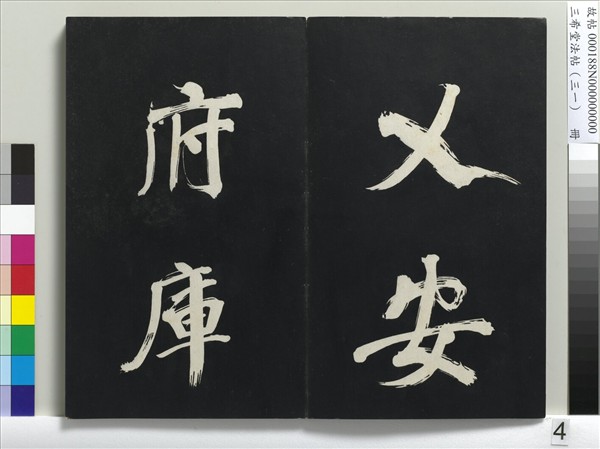 乂安
府庫
故帖 000188N000000000
三希堂法帖（三一） 冊
4